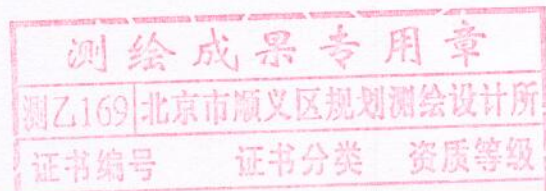 测绘成果专用章
测乙169 北京市顺义区规划测绘设计所
证书编号 证书分类 资质等级